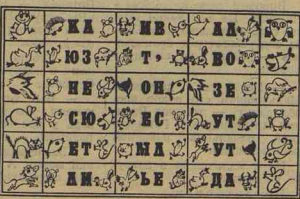 КА ИВ АЛ
ЮЗ Т, ВО
НЕ ОН ЗЕ
СЮ ЕС УТ
ЕТ МА УТ
ЛИ ЬЕ ДА